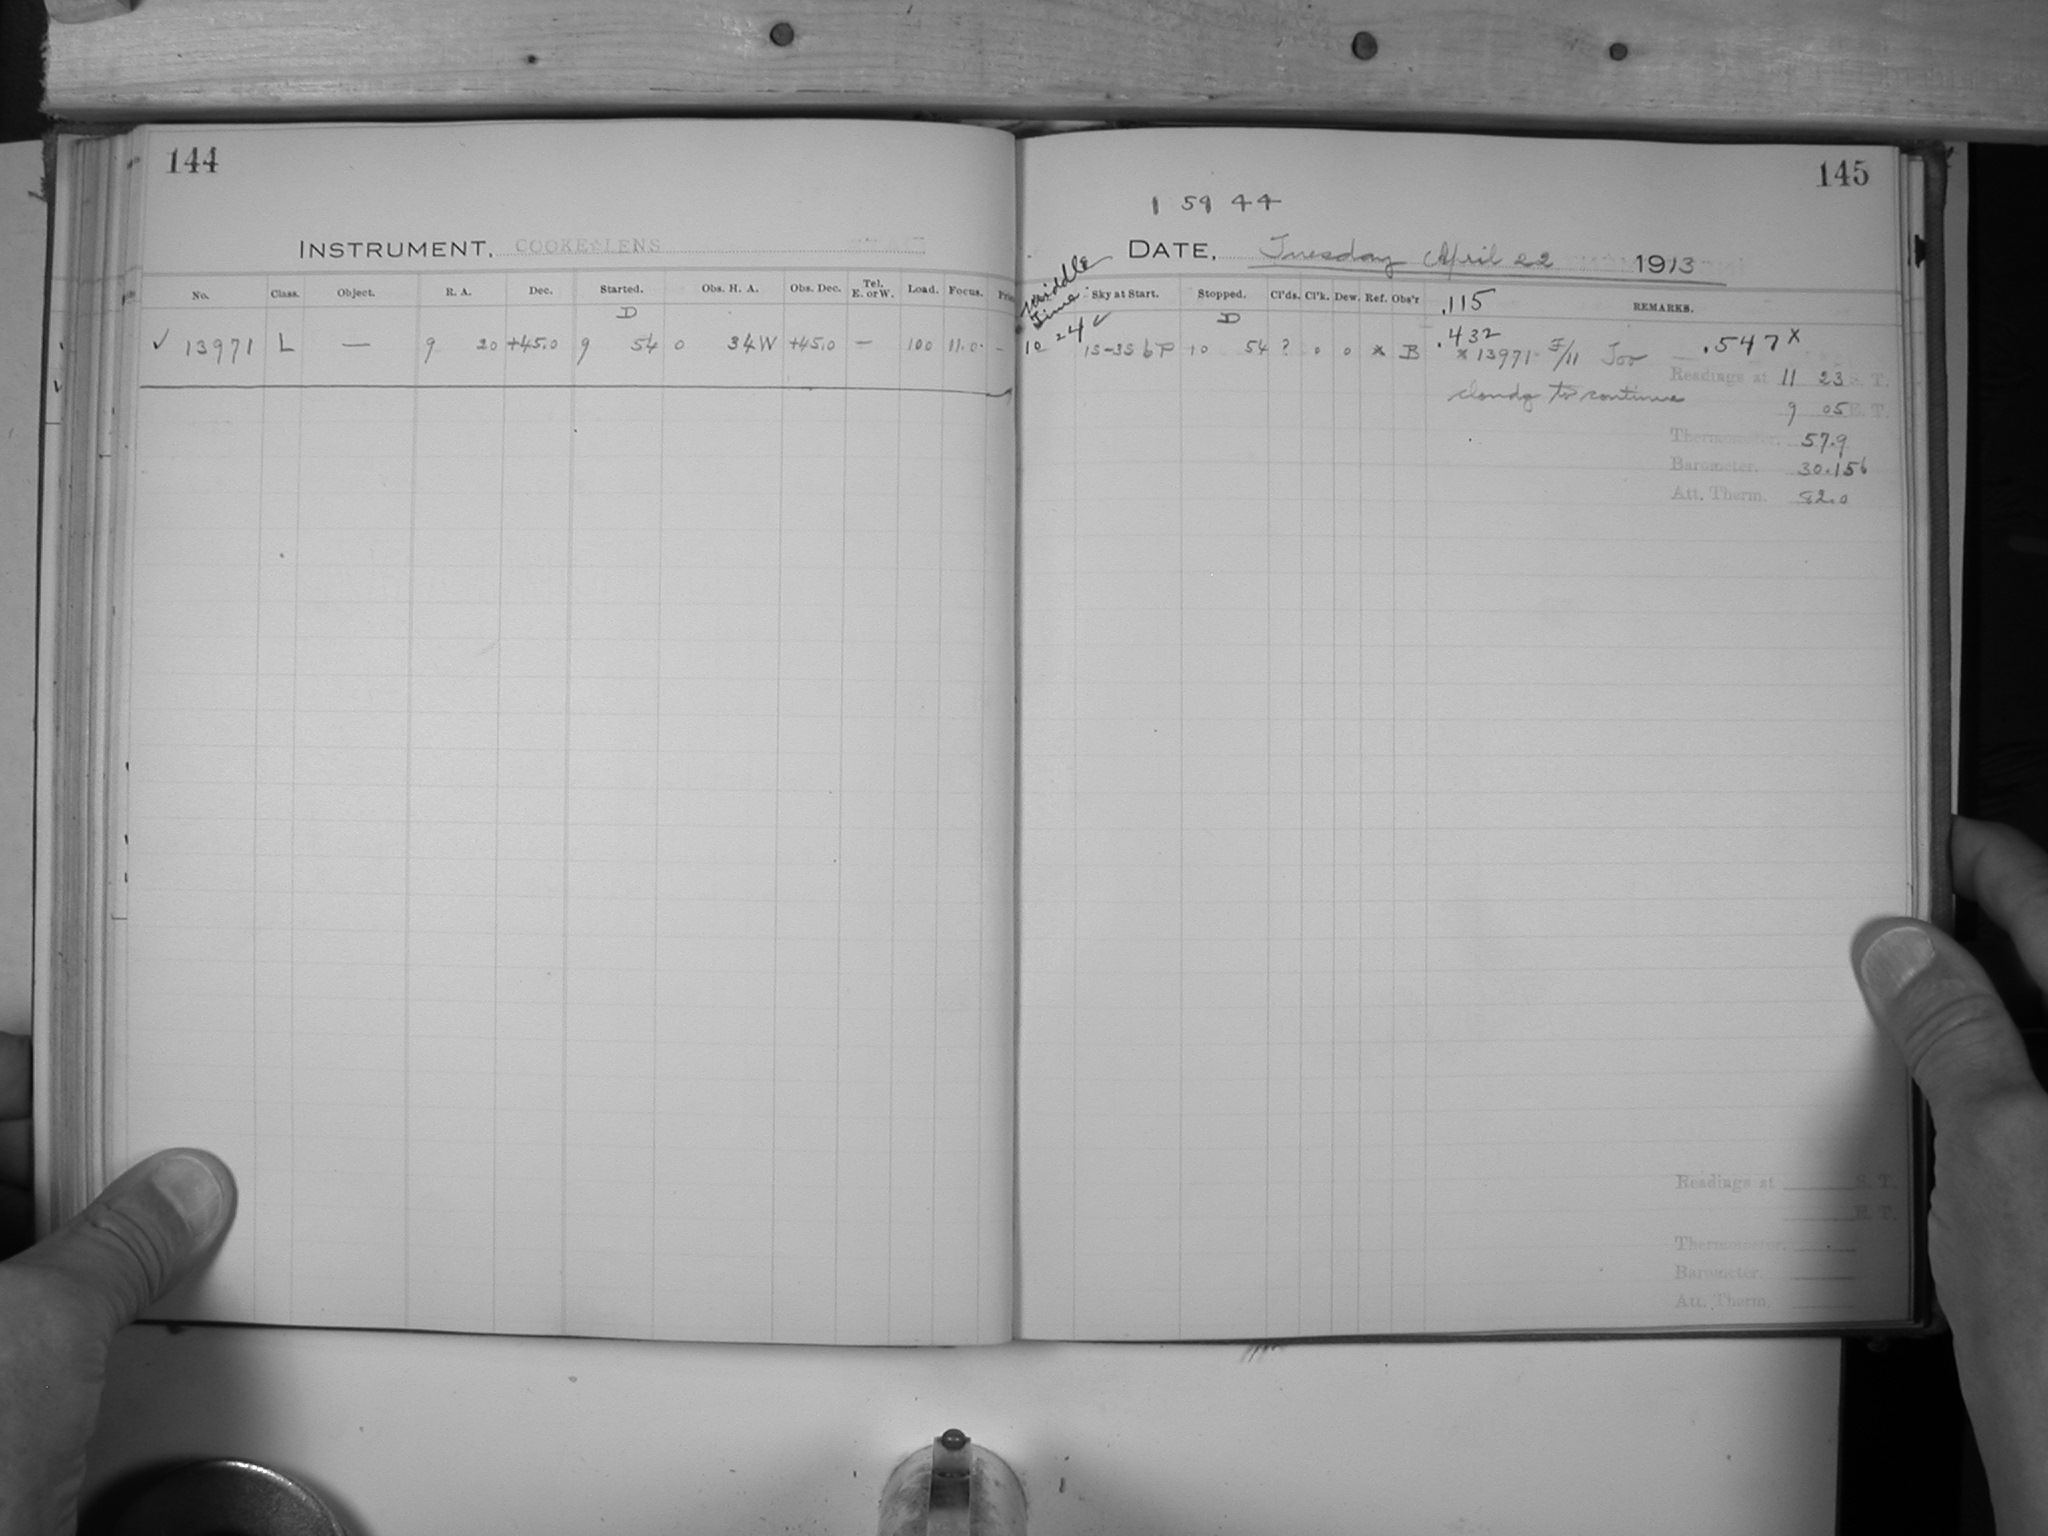 144
INSTRUMENT, COOKE LENS
No. Class. Object. R. A. Dec. Started. Obs. H. A. Obs. Dec. Tel. E. or W. Load. Focus.
D
✓ 13971 L — 9 20 +45.0 9 54 0 34W +45.0 — 100 11.0 -
145
1 59 44
DATE, Tuesday April 22 1913
Middle Time
Sky at Start. Stopped. Cl'ds. Cl'k. Dew. Ref. Obs'r REMARKS.
.115
D
10 24 ✓ 1S-3S 6P 10 54 ? 0 0 * B .432 .547 x
* 13971 F/11 Too
cloudy to continue
Readings at 11 23 S. T.
9 05 E. T.
Thermometer. 57.9
Barometer. 30.156
Att. Therm. 82.0
Readings at S. T.
E. T.
Thermometer.
Barometer.
Att. Therm.